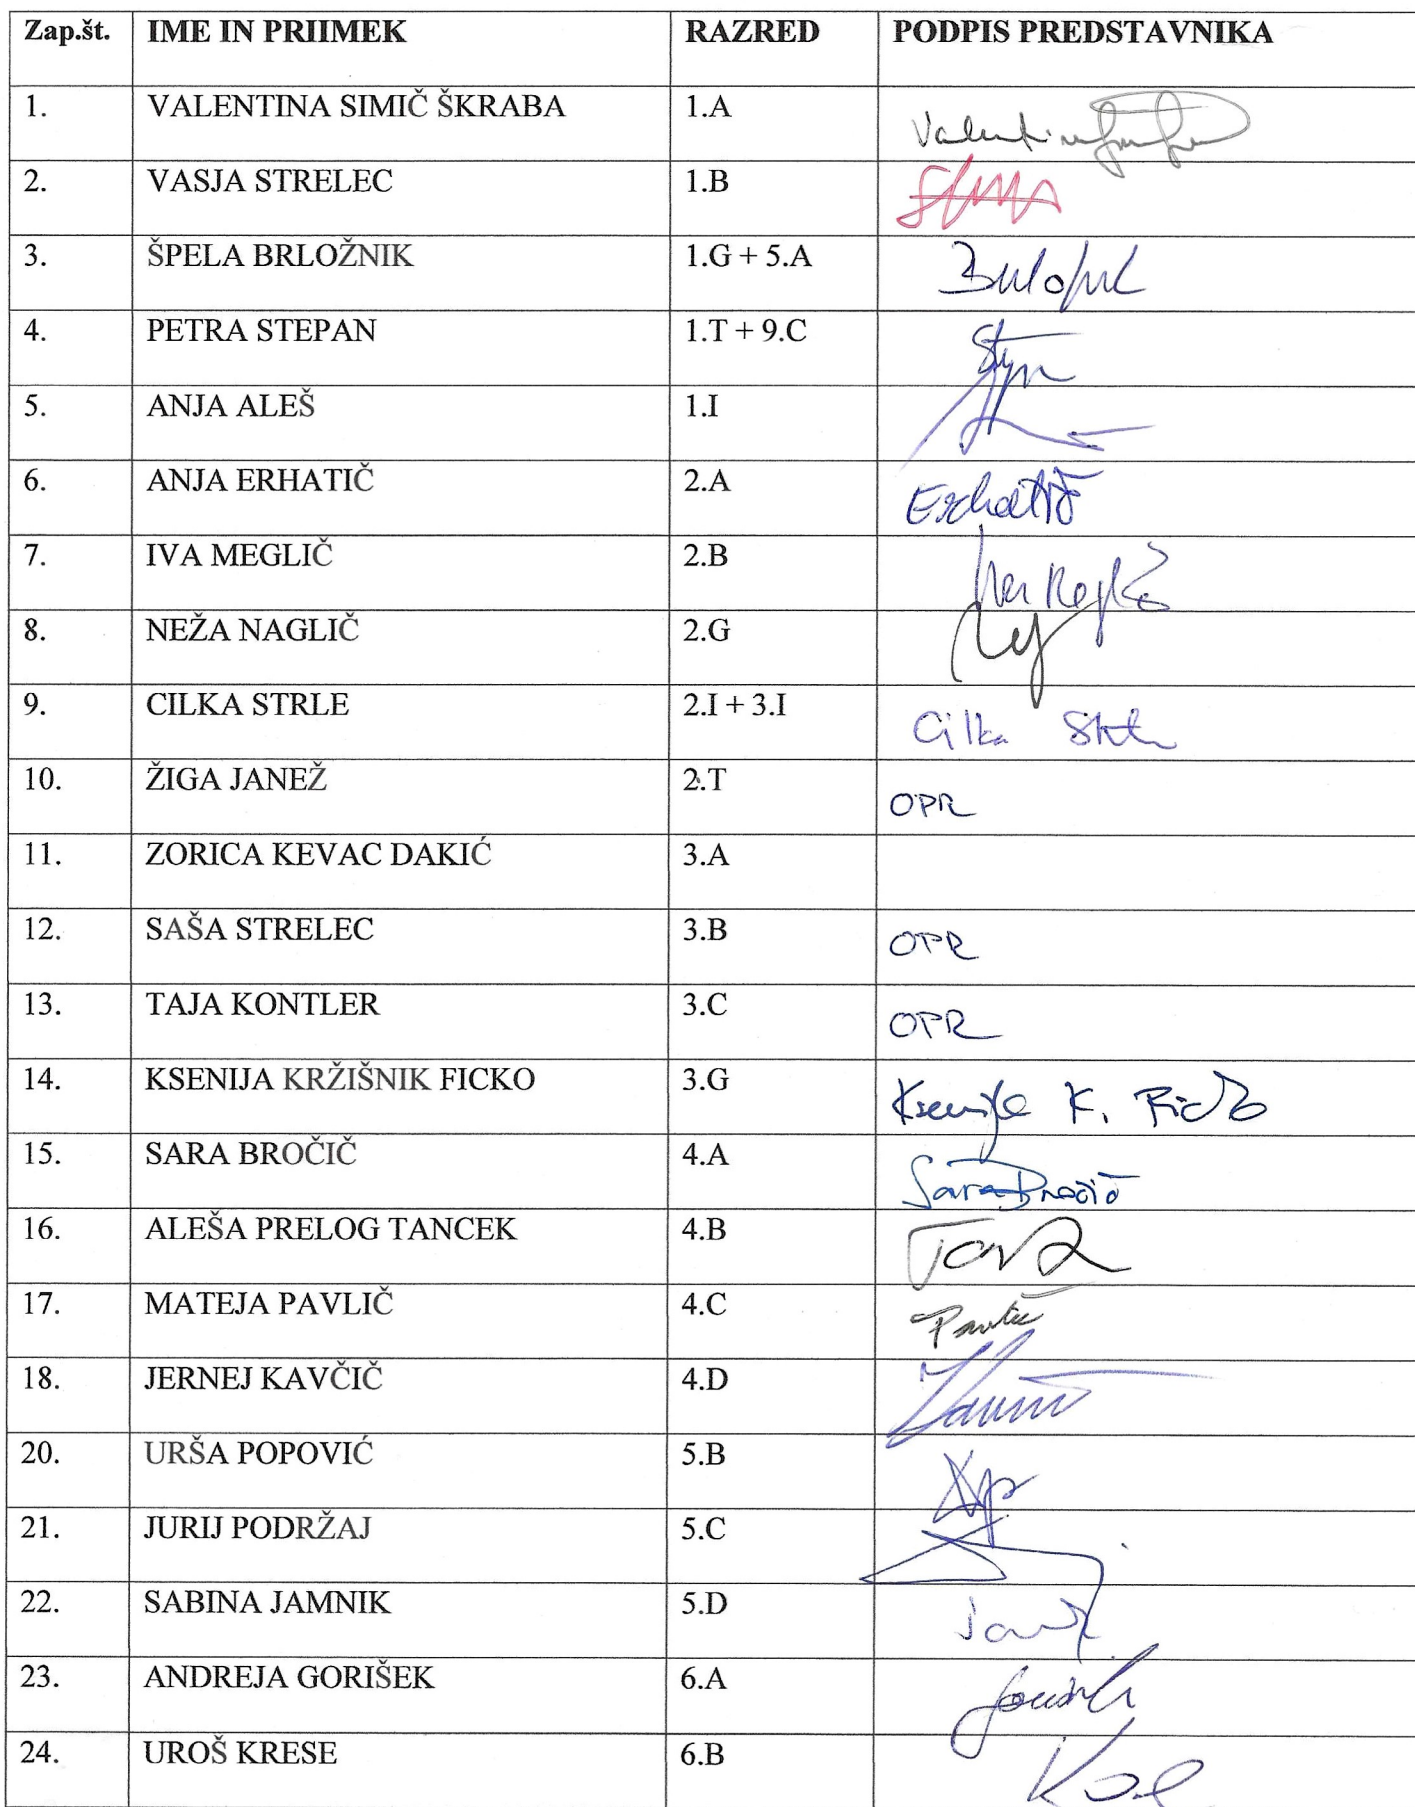 Zap.št. IME IN PRIIMEK RAZRED PODPIS PREDSTAVNIKA
1. VALENTINA SIMIČ ŠKRABA 1.A
2. VASJA STRELEC 1.B
3. ŠPELA BRLOŽNIK 1.G + 5.A
4. PETRA STEPAN 1.T + 9.C
5. ANJA ALEŠ 1.I
6. ANJA ERHATIČ 2.A Erhatič
7. IVA MEGLIČ 2.B
8. NEŽA NAGLIČ 2.G
9. CILKA STRLE 2.I + 3.I Cilka Strle
10. ŽIGA JANEŽ 2.T OPR
11. ZORICA KEVAC DAKIĆ 3.A
12. SAŠA STRELEC 3.B OPR
13. TAJA KONTLER 3.C OPR
14. KSENIJA KRŽIŠNIK FICKO 3.G Ksenija K. Ficko
15. SARA BROČIČ 4.A Sara Bročič
16. ALEŠA PRELOG TANCEK 4.B
17. MATEJA PAVLIČ 4.C Pavlič
18. JERNEJ KAVČIČ 4.D
20. URŠA POPOVIĆ 5.B
21. JURIJ PODRŽAJ 5.C
22. SABINA JAMNIK 5.D
23. ANDREJA GORIŠEK 6.A
24. UROŠ KRESE 6.B